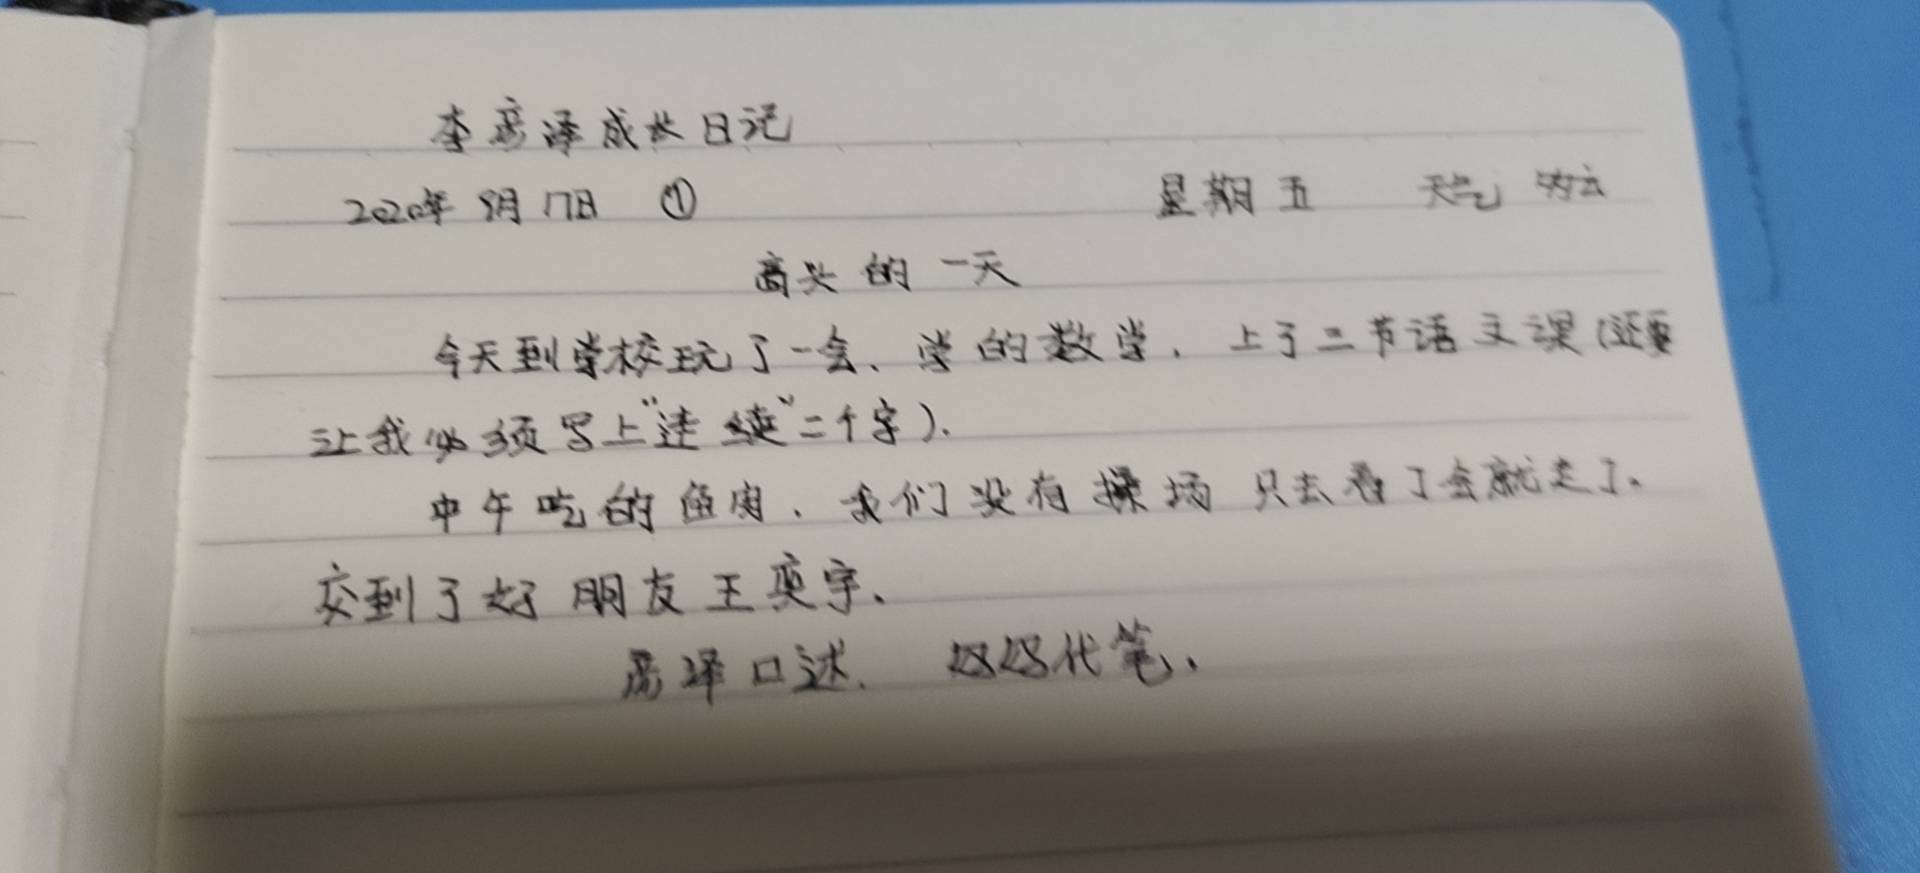 李彦泽成长日记
2020年9月17日 ① 星期五 天气 多云
高兴的一天
今天到学校玩了一会、学的数学、上了二节语文课(还要
让我必须写上"连续"二个字).
中午吃的鱼肉、我们没有操场 只去看了会就走了。
交到了好朋友王奕宇、
彦泽口述. 妈妈代笔、